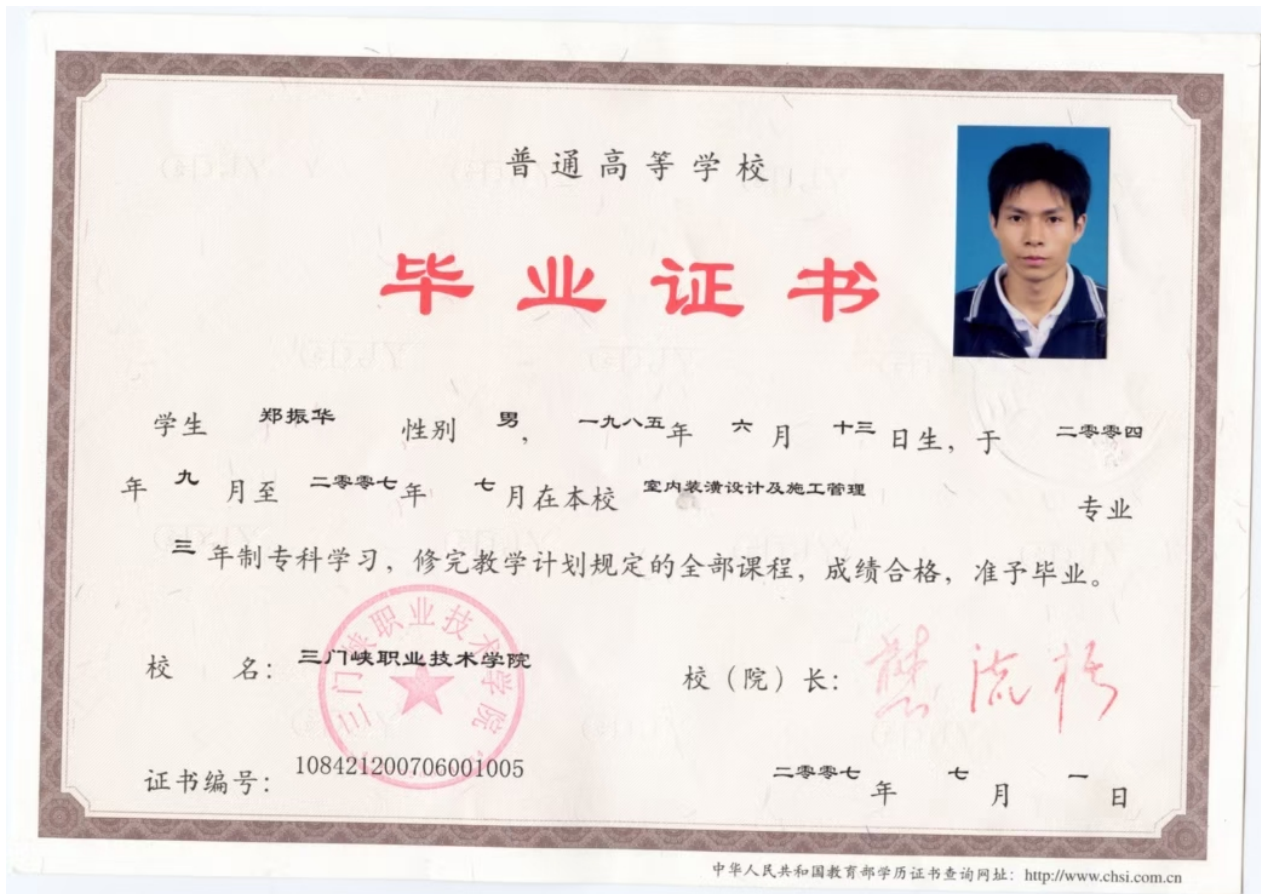 普通高等学校
毕业证书
学生 郑振华 性别 男, 一九八五年 六 月 十三 日生, 于 二零零四
年 九 月至 二零零七年 七 月在本校 室内装潢设计及施工管理 专业
三 年制专科学习, 修完教学计划规定的全部课程, 成绩合格, 准予毕业。
校 名: 三门峡职业技术学院
三门峡职业技术学院
校（院）长:
证书编号: 108421200706001005
二零零七 年 七 月 一 日
中华人民共和国教育部学历证书查询网址: http://www.chsi.com.cn